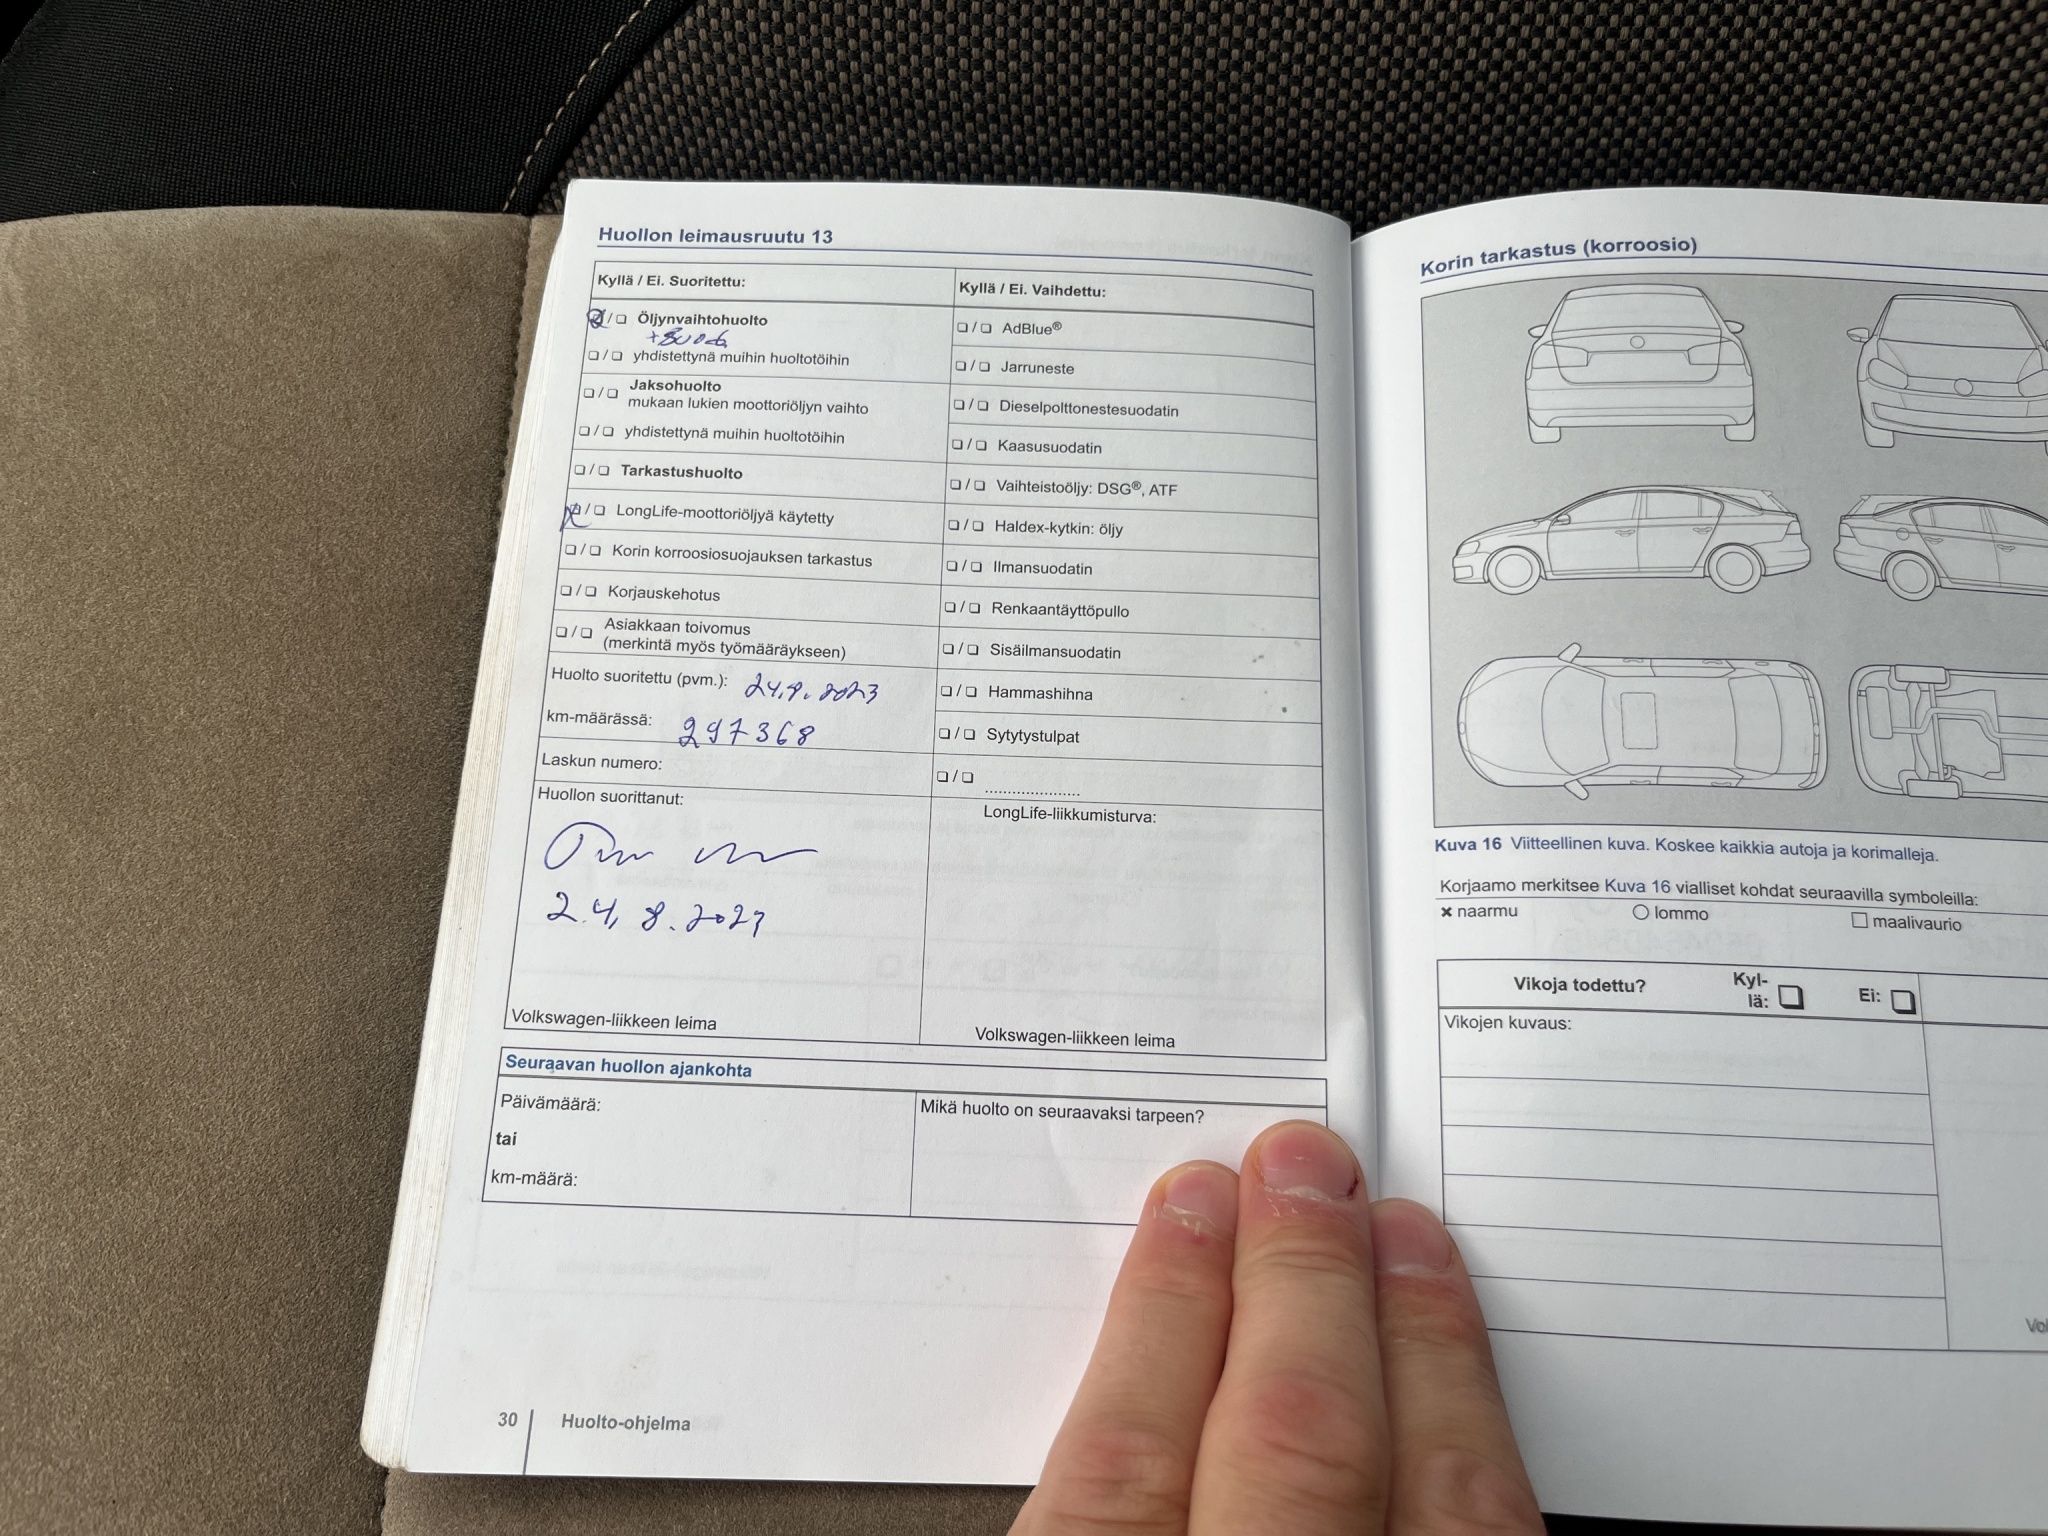 Huollon leimausruutu 13
Kyllä / Ei. Suoritettu:
❏ / ❏ Öljynvaihtohuolto
+Suod.
❏ / ❏ yhdistettynä muihin huoltotöihin
❏ / ❏ Jaksohuolto
mukaan lukien moottoriöljyn vaihto
❏ / ❏ yhdistettynä muihin huoltotöihin
❏ / ❏ Tarkastushuolto
❏ / ❏ LongLife-moottoriöljyä käytetty
❏ / ❏ Korin korroosiosuojauksen tarkastus
❏ / ❏ Korjauskehotus
❏ / ❏ Asiakkaan toivomus
(merkintä myös työmääräykseen)
Huolto suoritettu (pvm.): 24.8.2023
km-määrässä: 297368
Laskun numero:
Huollon suorittanut:
24.8.2023
Volkswagen-liikkeen leima
Kyllä / Ei. Vaihdettu:
❏ / ❏ AdBlue®
❏ / ❏ Jarruneste
❏ / ❏ Dieselpolttonestesuodatin
❏ / ❏ Kaasusuodatin
❏ / ❏ Vaihteistoöljy: DSG®, ATF
❏ / ❏ Haldex-kytkin: öljy
❏ / ❏ Ilmansuodatin
❏ / ❏ Renkaantäyttöpullo
❏ / ❏ Sisäilmansuodatin
❏ / ❏ Hammashihna
❏ / ❏ Sytytystulpat
❏ / ❏ .....................
LongLife-liikkumisturva:
Volkswagen-liikkeen leima
Seuraavan huollon ajankohta
Päivämäärä:
tai
km-määrä:
Mikä huolto on seuraavaksi tarpeen?
30 Huolto-ohjelma
Korin tarkastus (korroosio)
Kuva 16 Viitteellinen kuva. Koskee kaikkia autoja ja korimalleja.
Korjaamo merkitsee Kuva 16 vialliset kohdat seuraavilla symboleilla:
× naarmu ○ lommo □ maalivaurio
Vikoja todettu? Kyl-
lä: ❏ Ei: ❏
Vikojen kuvaus: